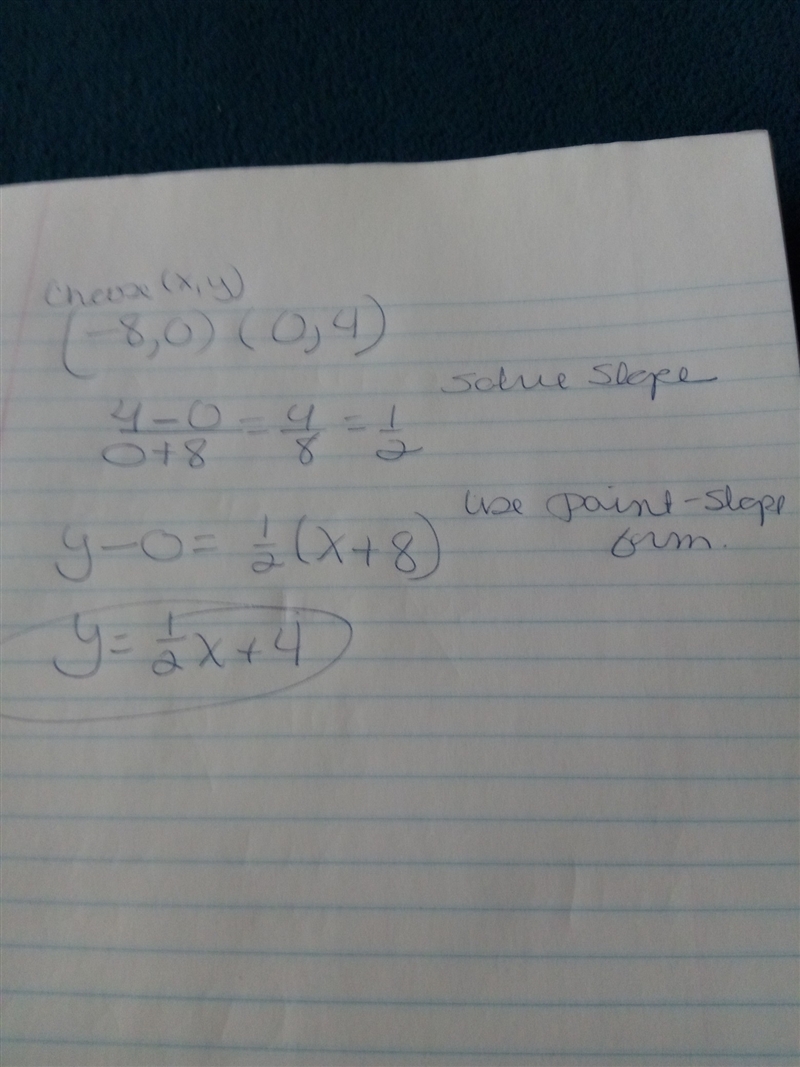 Choose (x,y)
(-8,0) (0,4)
solve slope
4-0/0+8 = 4/8 = 1/2
use point-slope
form.
y-0 = 1/2(x+8)
y = 1/2x+4